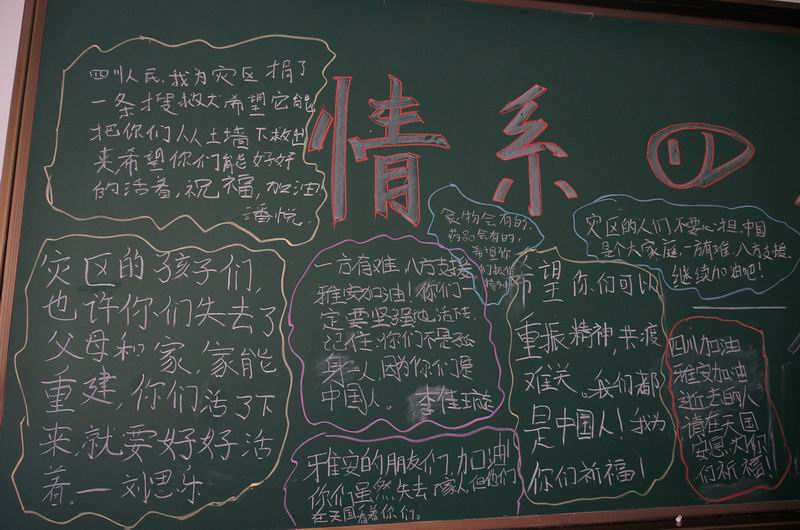 情系
四川人民,我为灾区捐了
一条搜救犬希望它能
把你们从土墙下救出
来希望你们能好好
的活着,祝福,加油,
潘悦。
灾区的孩子们,
也许你们失去了
父母和家,家能
重建,你们活了下
来,就要好好活
着。一刘思乐
一方有难,八方支援
雅安加油!你们一
定要坚强地活下
记住:你们不是孤
身一人,因为你们是
中国人。 李佳璇
食物会有的,
药品会有的,
希望你
们
灾区的人们不要心担,中国
是个大家庭,一方有难,八方支援。
继续加油吧!
希望你们可以
重振精神,共渡
难关。我们都
是中国人!我为
你们祈福!
四川加油
雅安加油
逝去的人
请在天国
安息,为你
们祈福!
雅安的朋友们,加油!
你们虽然失去了家人,但他们
在天国看着你们。